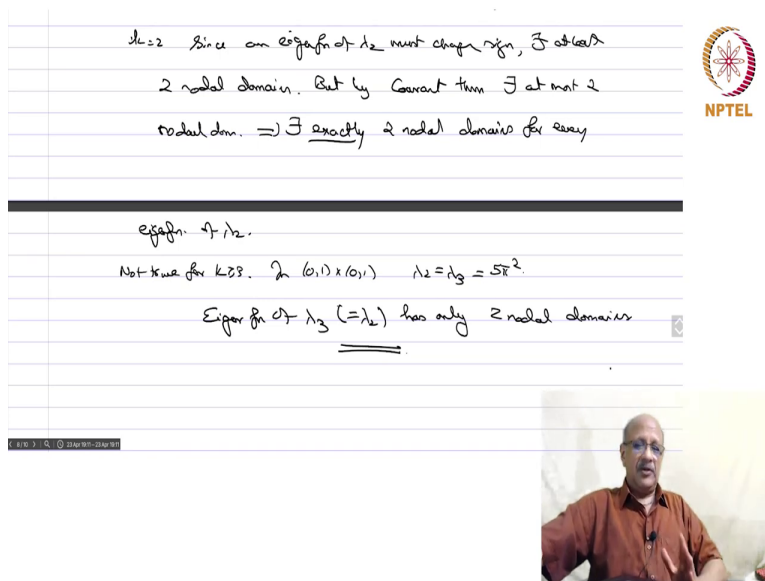 k=2 Since an eigenfn of λ2 must change sign, ∃ at least
2 nodal domains. But by Courant thm ∃ at most 2
nodal dom. => ∃ exactly 2 nodal domains for every
eigefn. of λ2.
Not true for k≥3. In (0,1)×(0,1) λ2 = λ3 = 5π².
Eigen fn of λ3 (=λ2) has only 2 nodal domains
NPTEL
8/10 23 Apr 19:11 – 23 Apr 19:11